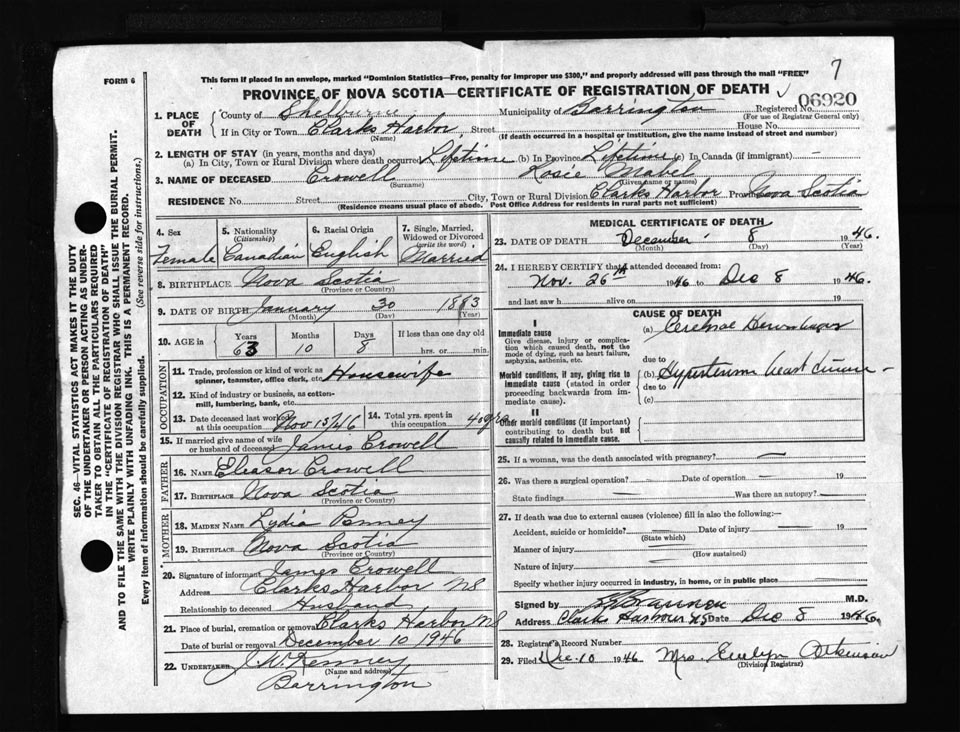 7
FORM 6
This form if placed in an envelope, marked "Dominion Statistics—Free, penalty for improper use $300," and properly addressed will pass through the mail "FREE"
PROVINCE OF NOVA SCOTIA—CERTIFICATE OF REGISTRATION OF DEATH
1. PLACE OF DEATH County of Shelburne Municipality of Barrington Registered No. 06920
(For use of Registrar General only)
If in City or Town Clarks Harbor Street House No.
(Name) (If death occurred in a hospital or institution, give the name instead of street and number)
2. LENGTH OF STAY (in years, months and days)
(a) In City, Town or Rural Division where death occurred Lifetime (b) In Province Lifetime (c) In Canada (if immigrant) —
3. NAME OF DECEASED Crowell Rosie Mabel
(Surname) (Given name or names)
RESIDENCE No. Street City, Town or Rural Division Clarks Harbor Prov. Nova Scotia
(Residence means usual place of abode. Post Office Address for residents in rural parts not sufficient)
4. Sex 5. Nationality (Citizenship) 6. Racial Origin 7. Single, Married, Widowed or Divorced (write the word)
Female Canadian English Married
8. BIRTHPLACE Nova Scotia
(Province or Country)
9. DATE OF BIRTH January 30 1883
(Month) (Day) (Year)
10. AGE in Years Months Days If less than one day old
63 10 8 hrs. or min.
OCCUPATION
11. Trade, profession or kind of work as spinner, teamster, office clerk, etc. Housewife
12. Kind of industry or business, as cotton-mill, lumbering, bank, etc.
13. Date deceased last worked at this occupation Nov 15/46 14. Total yrs. spent in this occupation 40 yrs
15. If married give name of wife or husband of deceased James Crowell
FATHER
16. NAME Eleasor Crowell
17. BIRTHPLACE Nova Scotia
(Province or Country)
MOTHER
18. MAIDEN NAME Lydia Penney
19. BIRTHPLACE Nova Scotia
(Province or Country)
20. Signature of informant James Crowell
Address Clarks Harbor NS
Relationship to deceased Husband
21. Place of burial, cremation or removal Clarks Harbor NS
Date of burial or removal December 10 1946
22. UNDERTAKER J.W. Kenney
(Name and address)
Barrington
MEDICAL CERTIFICATE OF DEATH
23. DATE OF DEATH December 8 1946.
(Month) (Day) (Year)
24. I HEREBY CERTIFY that I attended deceased from:
Nov. 26th 1946 to Dec 8 1946.
and last saw h alive on 19
CAUSE OF DEATH
I
Immediate cause
Give disease, injury or complication which caused death, not the mode of dying, such as heart failure, asphyxia, asthenia, etc.
(a) Cerebral
due to
Morbid conditions, if any, giving rise to immediate cause (stated in order proceeding backwards from immediate cause).
(b) heart disease
due to
(c)
II
Other morbid conditions (if important) contributing to death but not causally related to immediate cause.
25. If a woman, was the death associated with pregnancy? —
26. Was there a surgical operation? — Date of operation — 19
State findings — Was there an autopsy? —
27. If death was due to external causes (violence) fill in also the following:—
Accident, suicide or homicide? Date of injury — 19
(State which)
Manner of injury
(How sustained)
Nature of injury
Specify whether injury occurred in industry, in home, or in public place
Signed by M.D.
Address Clarks Harbour NS Date Dec 8 1946.
28. Registrar's Record Number
29. Filed Dec. 10 1946 Mrs. Evelyn Atkinson
(Division Registrar)
SEC. 46—VITAL STATISTICS ACT MAKES IT THE DUTY
OF THE UNDERTAKER OR PERSON ACTING AS UNDER-
TAKER TO OBTAIN ALL THE PARTICULARS REQUIRED
IN THE "CERTIFICATE OF REGISTRATION OF DEATH"
AND TO FILE THE SAME WITH THE DIVISION REGISTRAR WHO SHALL ISSUE THE BURIAL PERMIT.
WRITE PLAINLY WITH UNFADING INK. THIS IS A PERMANENT RECORD.
Every item of information should be carefully supplied. (See reverse side for instructions.)